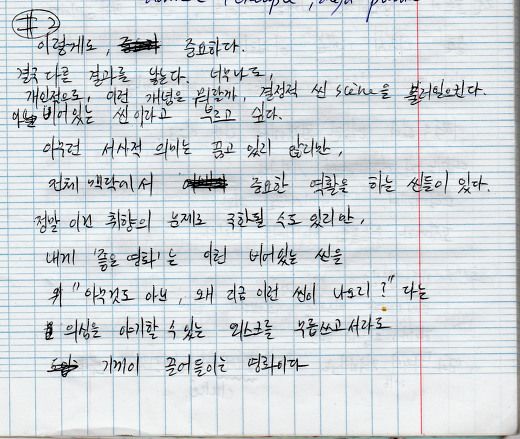 #2
이렇게도, 중요하다.
결국 다른 결과를 낳는다. 너무나도,
개인적으로, 이런 개념을 뭐랄까, 결정적 씬 scene을 불러일으킨다.
비어있는 씬이라고 부르고 싶다.
아무런 서사적 의미는 끌고 있지 않지만,
전체 맥락에서 중요한 역할을 하는 씬들이 있다.
정말 이건 취향의 문제로 국한될 수도 있지만,
내게 '좋은 영화'는 이런 비어있는 씬을
"아무것도 아닌, 왜 지금 이런 씬이 나오지?" 라는
의심을 야기할 수 있는 리스크를 무릅쓰고서라도
기꺼이 끌어들이는 영화이다